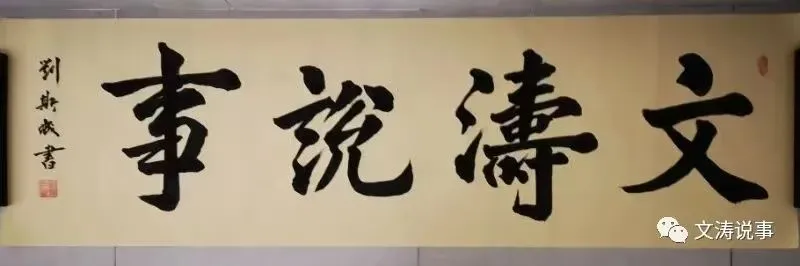 文濤説事
劉斯成書
文涛说事